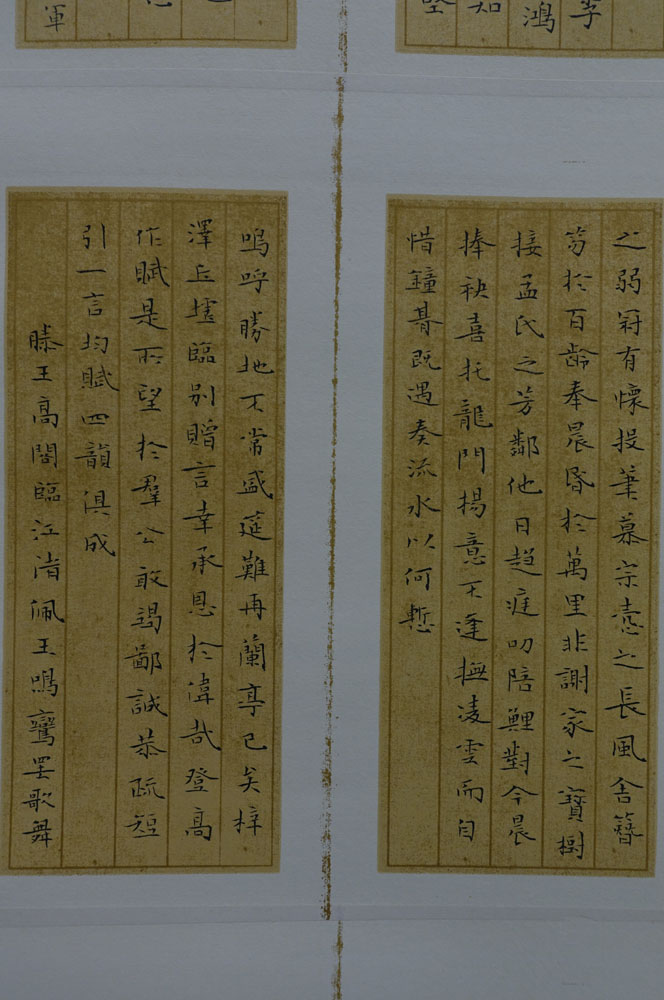 李
鴻
知
堅
軍
之弱冠有懷投筆慕宗愨之長風舍簪
笏於百齡奉晨昏於萬里非謝家之寶樹
接孟氏之芳鄰他日趨庭叨陪鯉對今晨
捧袂喜托龍門楊意不逢撫凌雲而自
惜鐘期既遇奏流水以何慙
嗚呼勝地不常盛筵難再蘭亭已矣梓
澤丘墟臨別贈言幸承恩於偉哉登高
作賦是所望於羣公敢竭鄙誠恭疏短
引一言均賦四韻俱成
滕王高閣臨江渚佩玉鳴鸞罷歌舞